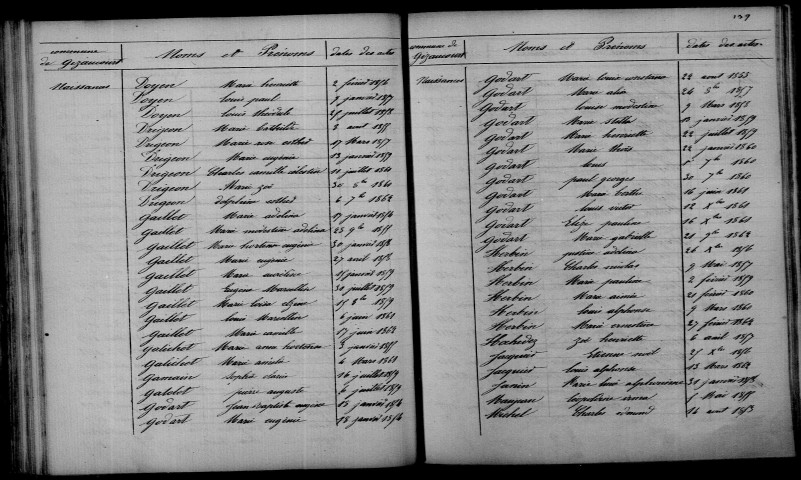 commune de Gézaincourt Noms et Prénoms dates des actes
Naissances Doyen Marie henriette 2 février 1856
Doyen louis paul 9 janvier 1857
Doyen louis théodule 25 juillet 1858
Drigeon Marie bathilde 3 aout 1855
Drigeon Marie rose esther 17 Mars 1857
Drigeon Marie eugénie 13 janvier 1859
Drigeon Charles camille célestin 11 juillet 1860
Drigeon Marie zoé 30 8bre 1860
Drigeon delphine esther 6 7bre 1862
Gaillet Marie adeline 17 janvier 1854
Gaillet Marie modestine adeline 23 9bre 1855
Gaillet Marie hortense eugénie 30 janvier 1858
Gaillet Marie eugénie 27 avril 1858
Gaillet Marie aurélie janvier 1859
Gaillet Eugène Marcellin 30 juillet 1859
Gaillet Marie loise elzire 15 8bre 1859
Gaillet louis Marcellin 6 juin 1860
Gaillet Marie camille 17 juin 1862
Galichet Marie anna hortense 3 janvier 1855
Galichot Marie 4 Mars 1860
Gamain Sophie clarisse 16 juillet 1859
pierre auguste 6 juillet 1859
Godart Jean baptiste eugène 15 janvier 1854
Godart Marie eugénie 18 janvier 1854
139
commune de Gézaincourt Noms et Prénoms dates des actes
Naissances Godart Marie louise 22 aout 1855
Godart Marie alix 24 8bre 1857
Godart louise modestine 9 Mars 1858
Godart Marie stella 19 janvier 1859
Godart Marie henriette 22 juillet 1859
Godart Marie 22 janvier 1860
Godart louis 7bre 1860
Godart paul georges 30 7bre 1860
Godart Marie berthe 16 juin 1861
Godart louis victor 12 Xbre 1861
Godart Eliza pauline 16 Xbre 1861
Godart Marie gabrielle 21 9bre 1862
Herbin justine adeline 26 Xbre 1856
Herbin Charles nicolas 9 Mai 1857
Herbin Marie pauline 2 février 1859
Herbin Marie aimée 21 février 1860
Herbin louis alphonse 9 Mars 1860
Herbin Marie ernestine 27 février 1862
zoé henriette 6 avril 1857
Jacquier Etienne noel 25 Xbre 1856
Jacquier louis alphonse 13 Mars 1862
Marie louise alphonsine 30 janvier 1858
léopoldine irma 5 Mai 1855
Michel Charles edmond 16 aout 1853